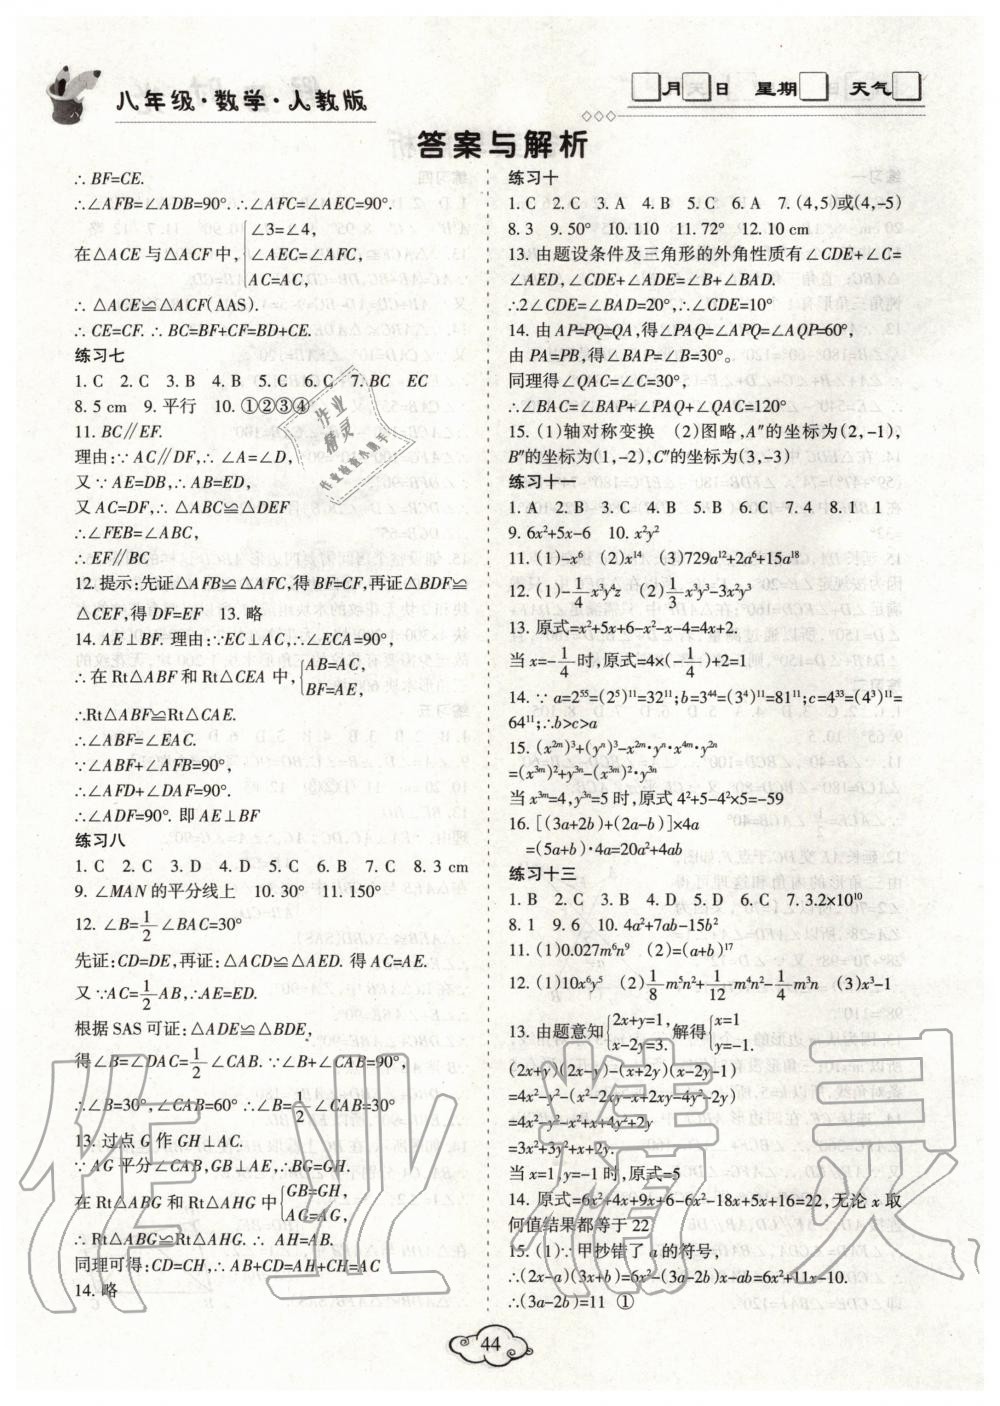 八年级·数学·人教版
月 日 星期 天气
答案与解析
∴BF=CE.
∴∠AFB=∠ADB=90°. ∴∠AFC=∠AEC=90°.
在△ACE与△ACF中, {∠3=∠4, ∠AEC=∠AFC, AC=AC,
∴△ACE≌△ACF(AAS).
∴CE=CF. ∴BC=BF+CF=BD+CE.
练习七
1. C 2. C 3. B 4. B 5. C 6. C 7. BC EC
8. 5 cm 9. 平行 10. ①②③④
11. BC∥EF.
理由:∵AC∥DF,∴∠A=∠D,
又∵AE=DB,∴AB=ED,
又AC=DF,∴△ABC≌△DEF
∴∠FEB=∠ABC,
∴EF∥BC
12. 提示:先证△AFB≌△AFC,得BF=CF,再证△BDF≌
△CEF,得DF=EF 13. 略
14. AE⊥BF. 理由:∵EC⊥AC,∴∠ECA=90°,
∴在Rt△ABF和Rt△CEA中, {AB=AC, BF=AE,
∴Rt△ABF≌Rt△CAE.
∴∠ABF=∠EAC.
∵∠ABF+∠AFB=90°,
∴∠AFD+∠DAF=90°.
∴∠ADF=90°. 即AE⊥BF
练习八
1. C 2. C 3. D 4. D 5. C 6. B 7. C 8. 3 cm
9. ∠MAN的平分线上 10. 30° 11. 150°
12. ∠B=1/2∠BAC=30°
先证:CD=DE,再证:△ACD≌△AED. 得AC=AE.
又∵AC=1/2AB,∴AE=ED.
根据SAS可证:△ADE≌△BDE,
得∠B=∠DAC=1/2∠CAB. ∵∠B+∠CAB=90°,
∴∠B=30°,∠CAB=60° ∴∠B=1/2∠CAB=30°
13. 过点G作GH⊥AC.
∵AG平分∠CAB,GB⊥AE,∴BG=GH.
在Rt△ABG和Rt△AHG中 {GB=GH, AG=AG,
∴Rt△ABG≌Rt△AHG. ∴AH=AB.
同理可得:CD=CH,∴AB+CD=AH+CH=AC
14. 略
练习十
1. C 2. C 3. A 4. B 5. C 6. A 7. (4,5)或(4,-5)
8. 3 9. 50° 10. 110 11. 72° 12. 10 cm
13. 由题设条件及三角形的外角性质有∠CDE+∠C=
∠AED,∠CDE+∠ADE=∠B+∠BAD.
∴2∠CDE=∠BAD=20°,∴∠CDE=10°
14. 由AP=PQ=QA,得∠PAQ=∠APQ=∠AQP=60°,
由PA=PB,得∠BAP=∠B=30°。
同理得∠QAC=∠C=30°,
∴∠BAC=∠BAP+∠PAQ+∠QAC=120°
15. (1)轴对称变换 (2)图略,A″的坐标为(2,-1),
B″的坐标为(1,-2),C″的坐标为(3,-3)
练习十一
1. A 2. B 3. C 4. A 5. B 6. C 7. 4 8. 1 1
9. 6x²+5x-6 10. x²y²
11. (1)-x⁶ (2)x¹⁴ (3)729a¹²+2a⁶+15a¹⁸
12. (1)-1/4x³y⁴z (2)1/3x³y³-3x²y³
13. 原式=x²+5x+6-x²-x-4=4x+2.
当x=-1/4时,原式=4×(-1/4)+2=1
14. ∵a=2⁵⁵=(2⁵)¹¹=32¹¹;b=3⁴⁴=(3⁴)¹¹=81¹¹;c=4³³=(4³)¹¹=
64¹¹;∴b>c>a
15. (x²ᵐ)³+(yⁿ)³-x²ᵐ·yⁿ·x⁴ᵐ·y²ⁿ
=(x³ᵐ)²+y³ⁿ-(x³ᵐ)²·y³ⁿ
当x³ᵐ=4,y³ⁿ=5时,原式4²+5-4²×5=-59
16. [(3a+2b)+(2a-b)]×4a
=(5a+b)·4a=20a²+4ab
练习十三
1. B 2. C 3. B 4. D 5. D 6. C 7. 3.2×10¹⁰
8. 1 9. 6 10. 4a²+7ab-15b²
11. (1)0.027m⁶n⁹ (2)=(a+b)¹⁷
12. (1)10x⁶y⁵ (2)1/8m⁵n²+1/12m⁴n²-1/4m³n (3)x³-1
13. 由题意知{2x+y=1, x-2y=3. 解得{x=1 y=-1.
(2x+y)(2x-y)-(x+2y)(x-2y-1)
=4x²-y²-(x²-2xy-x+2xy-4y²-2y)
=4x²-y²-x²+x+4y²+2y
=3x²+3y²+x+2y.
当x=1,y=-1时,原式=5
14. 原式=6x²+4x+9x+6-6x²-18x+5x+16=22,无论x取
何值结果都等于22
15. (1)∵甲抄错了a的符号,
∴(2x-a)(3x+b)=6x²-(3a-2b)x-ab=6x²+11x-10.
∴(3a-2b)=11 ①
44
作业精灵
作业精灵